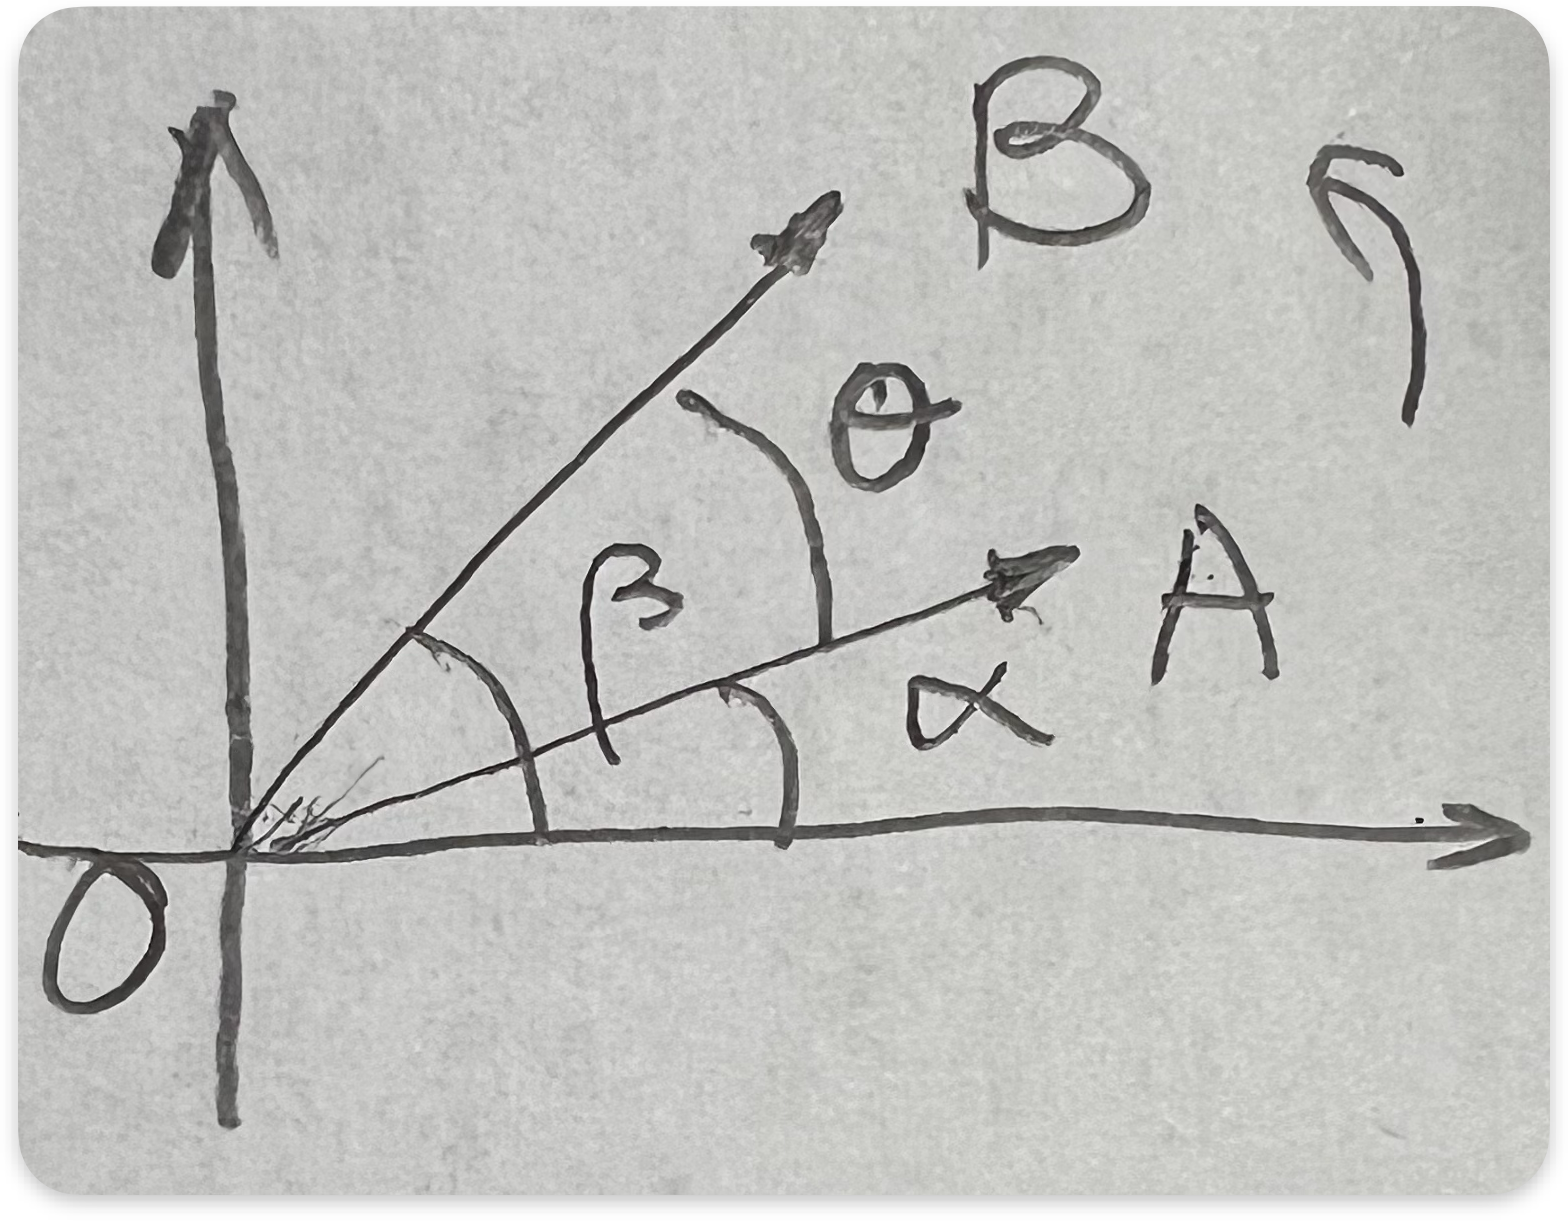 B
θ
β
A
α
O